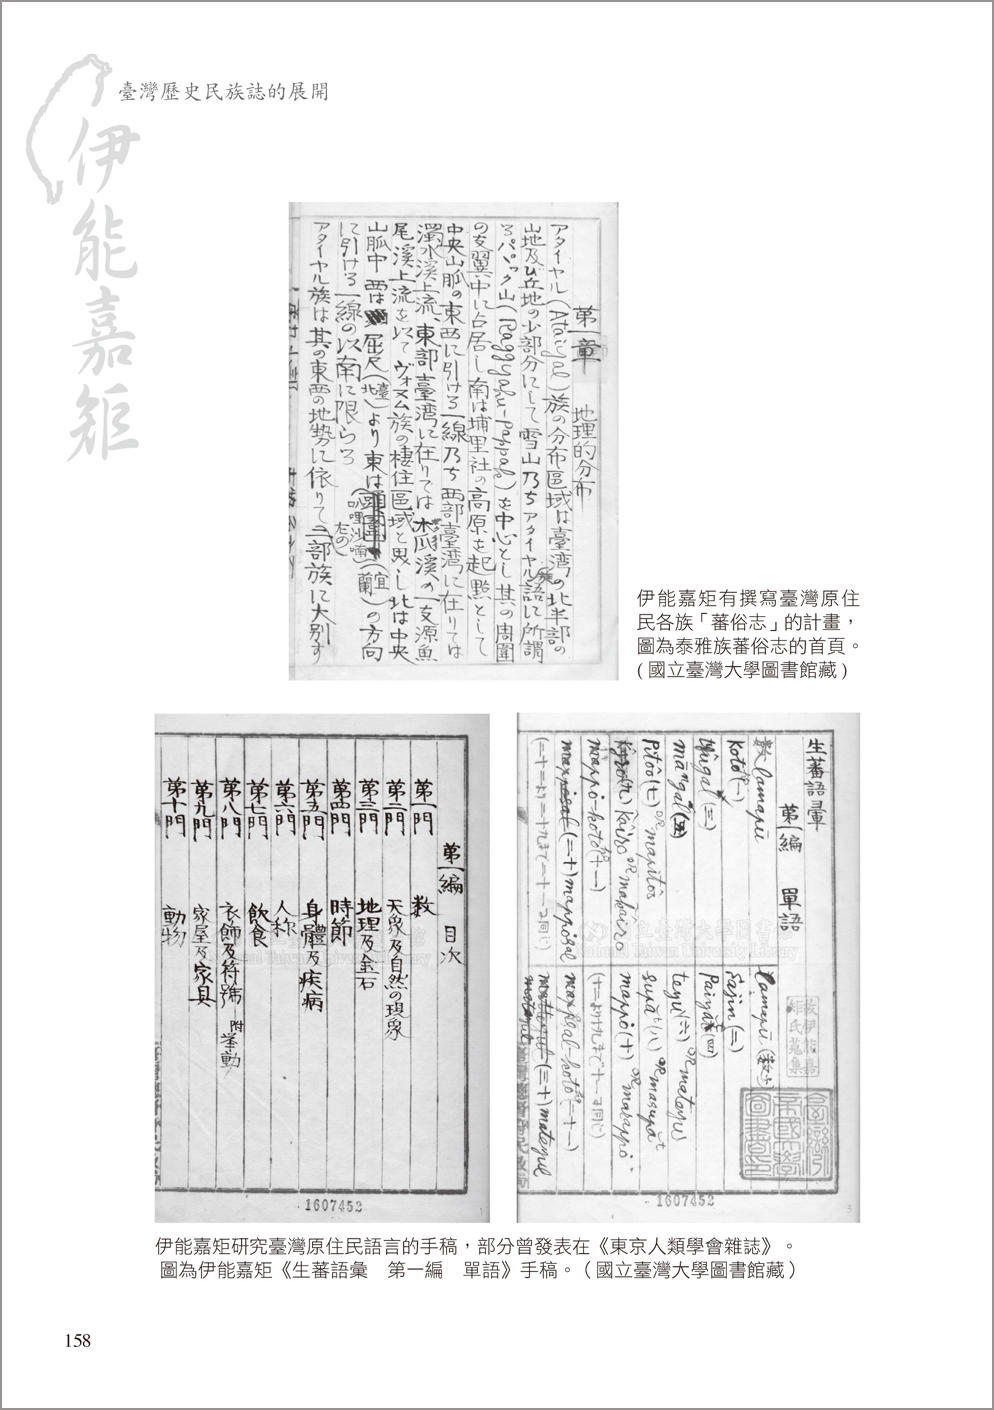 臺灣歷史民族誌的展開
伊能嘉矩
第一章 地理的分布
アタイヤル(Ataiyal)族の分布區域は臺灣の北半部の
山地及び丘地の少部分にして雪山乃ちアタイヤル族語に所謂
の支翼中に占居し南は埔里社の高原を起點として
中央山脈の東西に引ける一線乃ち西部臺湾に在りては
濁水溪上流、東部臺湾に在りては木瓜溪の一支源魚
尾溪上流を以てヴォヌム族の棲住區域と界し北は中央
山脈中西は屈尺(臺北)より東は叭哩沙喃(宜蘭)の方向
に引ける一線の以南に限らる
アタイヤル族は其の東西の地勢に依りて二部族に大別す
伊能嘉矩有撰寫臺灣原住
民各族「蕃俗志」的計畫，
圖為泰雅族蕃俗志的首頁。
(國立臺灣大學圖書館藏)
生蕃語彙
第一編 單語
數 lamapū
koto(一)
sajin(二)
tūgal(三)
paiyat(四)
māngal(五)
teyu(六) or mateyu
pitoo(七) or mapitoo
supat(八) or masupat
kairo(九) or makairo
mappo(十) or
mappo-koto(十一)
第一編 目次
第一門 數
第二門 天象及自然の現象
第三門 地理及金石
第四門 時節
第五門 身體及疾病
第六門 人称
第七門 飲食
第八門 衣飾及符號 附 挙動
第九門 家屋及家具
第十門 動物
1607452
1607452
伊能嘉矩研究臺灣原住民語言的手稿，部分曾發表在《東京人類學會雜誌》。
圖為伊能嘉矩《生蕃語彙 第一編 單語》手稿。（國立臺灣大學圖書館藏）
158